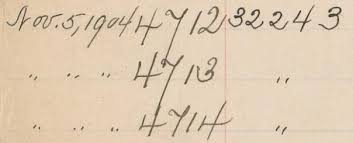 Nov. 5, 1904 4712 32243
〃 〃 〃 4713 〃
〃 〃 〃 4714 〃